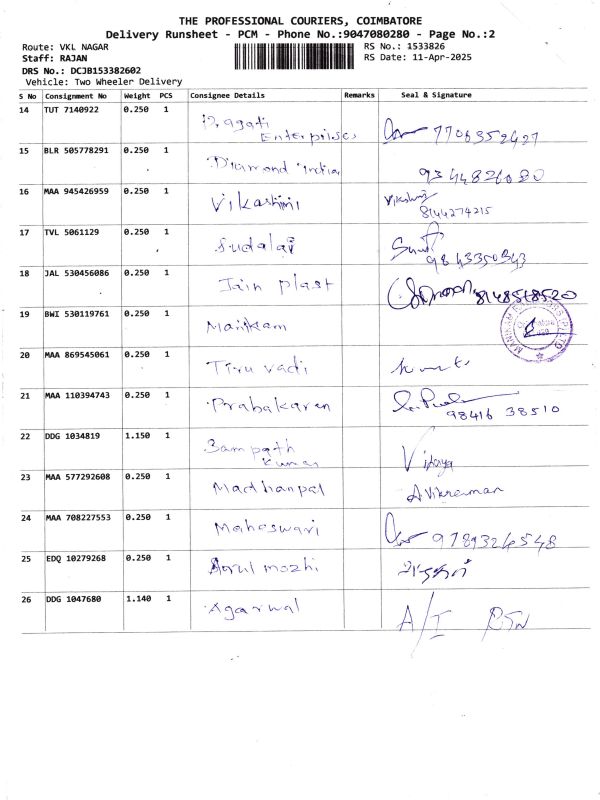 THE PROFESSIONAL COURIERS, COIMBATORE
Delivery Runsheet - PCM - Phone No.:9047080280 - Page No.:2
Route: VKL NAGAR
RS No.: 1533826
Staff: RAJAN
RS Date: 11-Apr-2025
DRS No.: DCJB153382602
Vehicle: Two Wheeler Delivery
S No Consignment No Weight PCS Consignee Details Remarks Seal & Signature
14 TUT 7140922 0.250 1 Pragati
Enterprises 7706352427
15 BLR 505778291 0.250 1 Diamond India 9344826020
16 MAA 945426959 0.250 1 Vikashini
8144274215
17 TVL 5061129 0.250 1 Sudalai
9843350343
18 JAL 530456086 0.250 1 Jain plast 8148518520
19 BWI 530119761 0.250 1 Manikam
20 MAA 869545061 0.250 1 Tiruvadi
21 MAA 110394743 0.250 1 Prabakaran
98416 38510
22 DDG 1034819 1.150 1 Sampath
Kumar Vidaya
23 MAA 577292608 0.250 1 Madhanpal
24 MAA 708227553 0.250 1 Maheswari 9789326548
25 EDQ 10279268 0.250 1 Arul mozhi
26 DDG 1047680 1.140 1 Agarwal A/I RTN